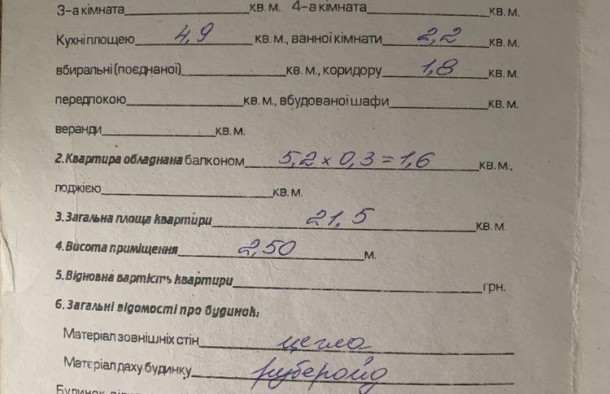 3-а кімната кв. м. 4-а кімната кв. м.
Кухні площею 4,9 кв. м., ванної кімнати 2,2 кв. м.
вбиральні (поєднаної) кв. м., коридору 1,8 кв. м.
передпокою кв. м., вбудованої шафи кв. м.
веранди кв. м.
2. Квартира обладнана балконом 5,2 х 0,3 = 1,6 кв. м.,
лоджією кв. м.
3. Загальна площа квартири 21,5 кв. м
4. Висота приміщення 2,50 м.
5. Відновна вартість квартири грн.
6. Загальні відомості про будинок:
Матеріал зовнішніх стін цегла
Матеріал даху будинку рубероїд